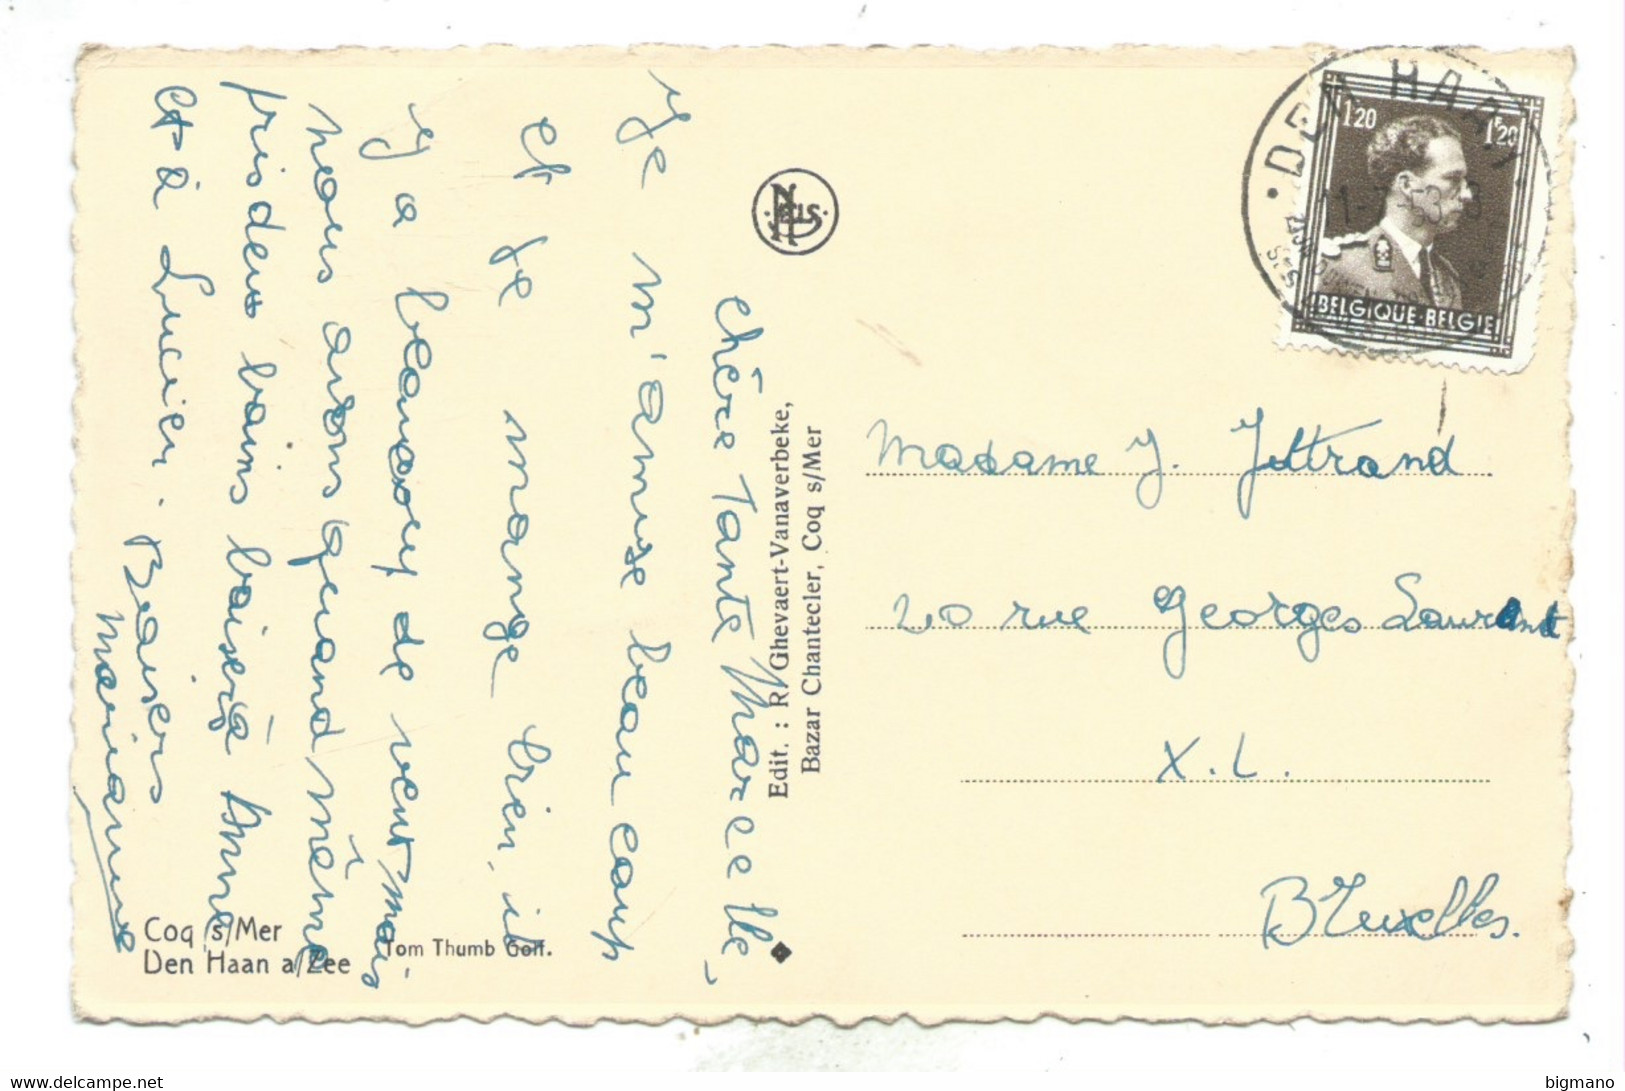 chère Tante Marcelle,
Je m'amuse beaucoup
et je mange bien, il
y a beaucoup de vent mais
nous avons quand même
pris deux bains baisers à Anne
et à Lucien. Baisers
Marianne
Coq s/Mer
Den Haan a/Zee
Tom Thumb Golf.
Edit. : R. Ghevaert-Vanaverbeke,
Bazar Chantecler, Coq s/Mer
NELS
DE HAAN
1.20 1F20
BELGIQUE-BELGIE
Madame J. Jottrand
20 rue Georges Laurent
X.L.
Bruxelles.
delcampe.net
bigmano